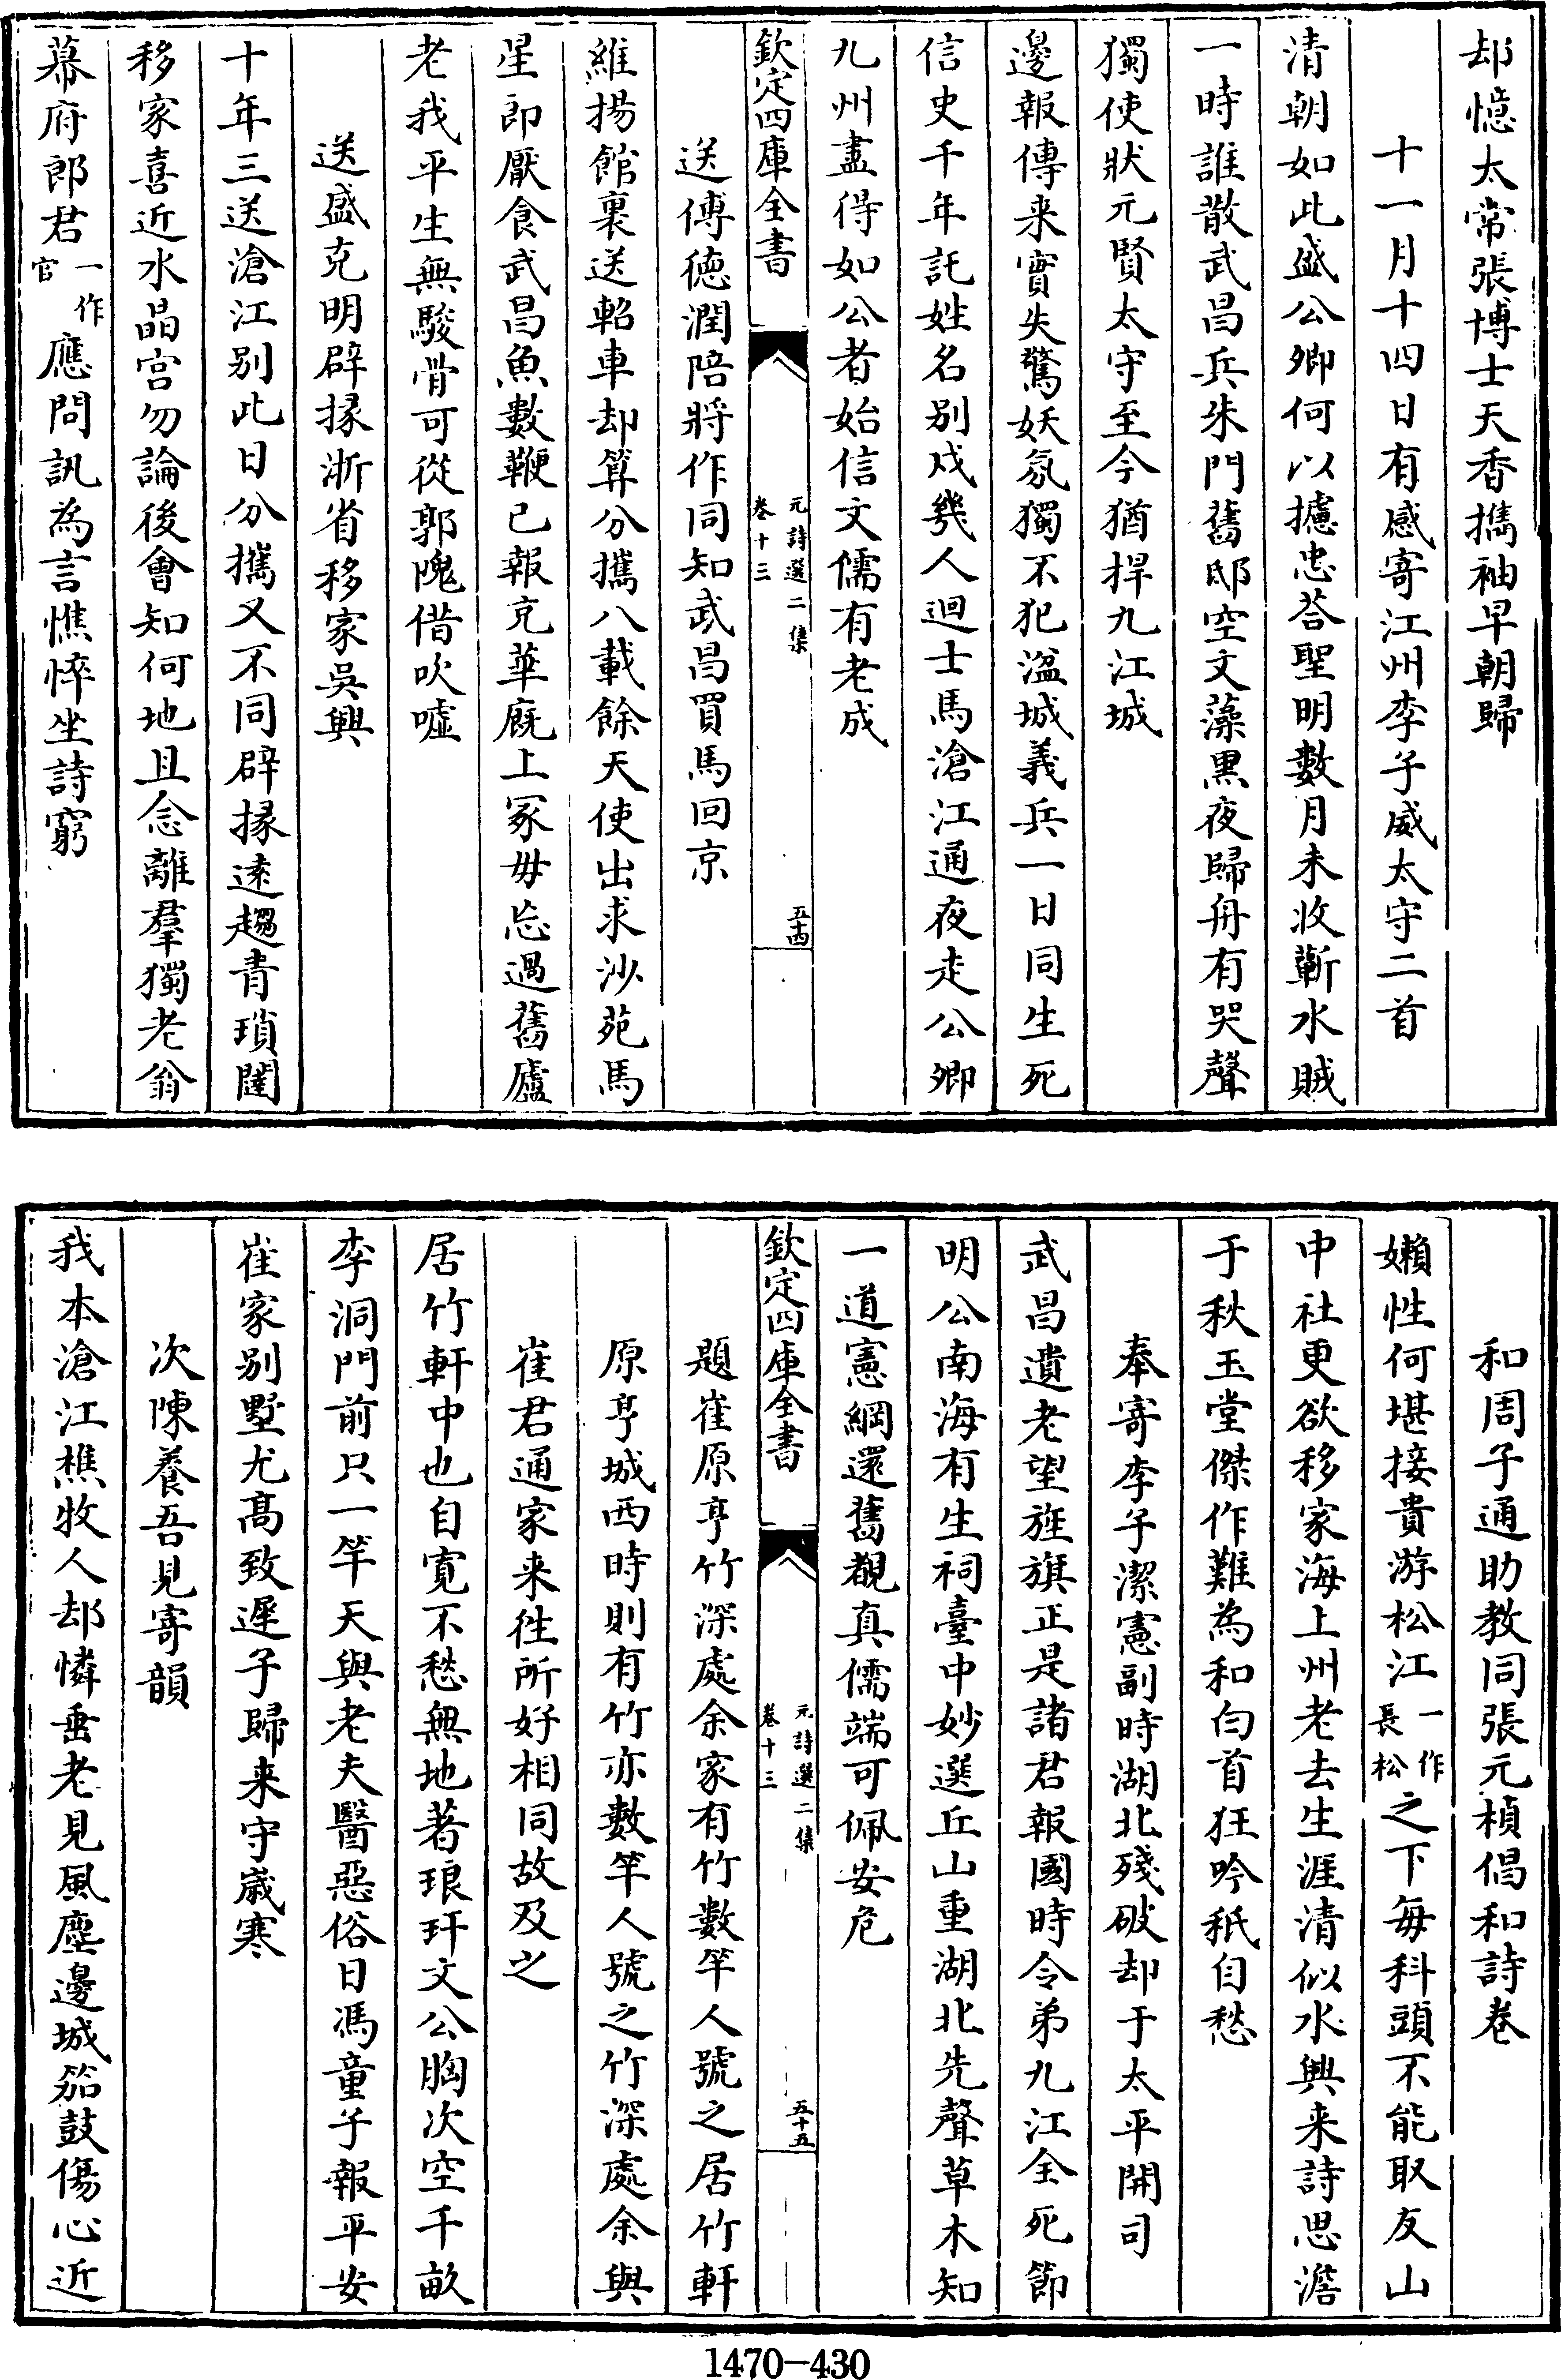 却憶太常張博士天香擕袖早朝歸
十一月十四日有感寄江州李子威太守二首
清朝如此盛公卿何以攄忠荅聖明數月未收蘄水賊
一時誰散武昌兵朱門舊邸空文藻黒夜歸舟有哭聲
獨使狀元賢太守至今猶捍九江城
邊報傳来實失驚妖氛獨不犯湓城義兵一日同生死
信史千年託姓名别戍幾人迴士馬滄江通夜走公卿
九州盡得如公者始信文儒有老成
欽定四庫全書
元詩選二集
卷十三
五十四
送傅徳潤陪將作同知武昌買馬回京
維揚館裏送軺車却算分攜八載餘天使出求沙苑馬
星郎厭食武昌魚數鞭已報充華廐上冢毋忘過舊廬
老我平生無駿骨可從郭隗借吹噓
送盛克明辟掾浙省移家吳興
十年三送滄江别此日分攜又不同辟掾遠趨青瑣闥
移家喜近水晶宫勿論後會知何地且念離羣獨老翁
幕府郎君一作官應問訊為言憔悴坐詩窮
和周子通助教同張元楨倡和詩卷
嬾性何堪接貴游松江一作長松之下每科頭不能取友山
中社更欲移家海上州老去生涯清似水興来詩思澹
于秋玉堂傑作難為和白首狂吟秖自愁
奉寄李子潔憲副時湖北殘破却于太平開司
武昌遺老望旌旗正是諸君報國時令弟九江全死節
明公南海有生祠臺中妙選丘山重湖北先聲草木知
一道憲綱還舊觀真儒端可佩安危
欽定四庫全書
元詩選二集
卷十三
五十五
題崔原亨竹深處余家有竹數竿人號之居竹軒
原亨城西時則有竹亦數竿人號之竹深處余與
崔君通家来徃所好相同故及之
居竹軒中也自寛不愁無地著琅玕文公胸次空千畝
李洞門前只一竿天與老夫醫惡俗日馮童子報平安
崔家别墅尤髙致遲子歸来守歳寒
次陳養吾見寄韻
我本滄江樵牧人却憐垂老見風塵邊城笳鼓傷心近
1470-430